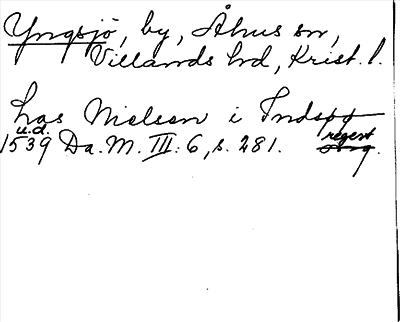 Yngsjö, by, Åhus sn,
Villands hd, Krist. l.
Las Nielsen i Indspg
u.d.
1539 Da. M. III: 6, s. 281. regest